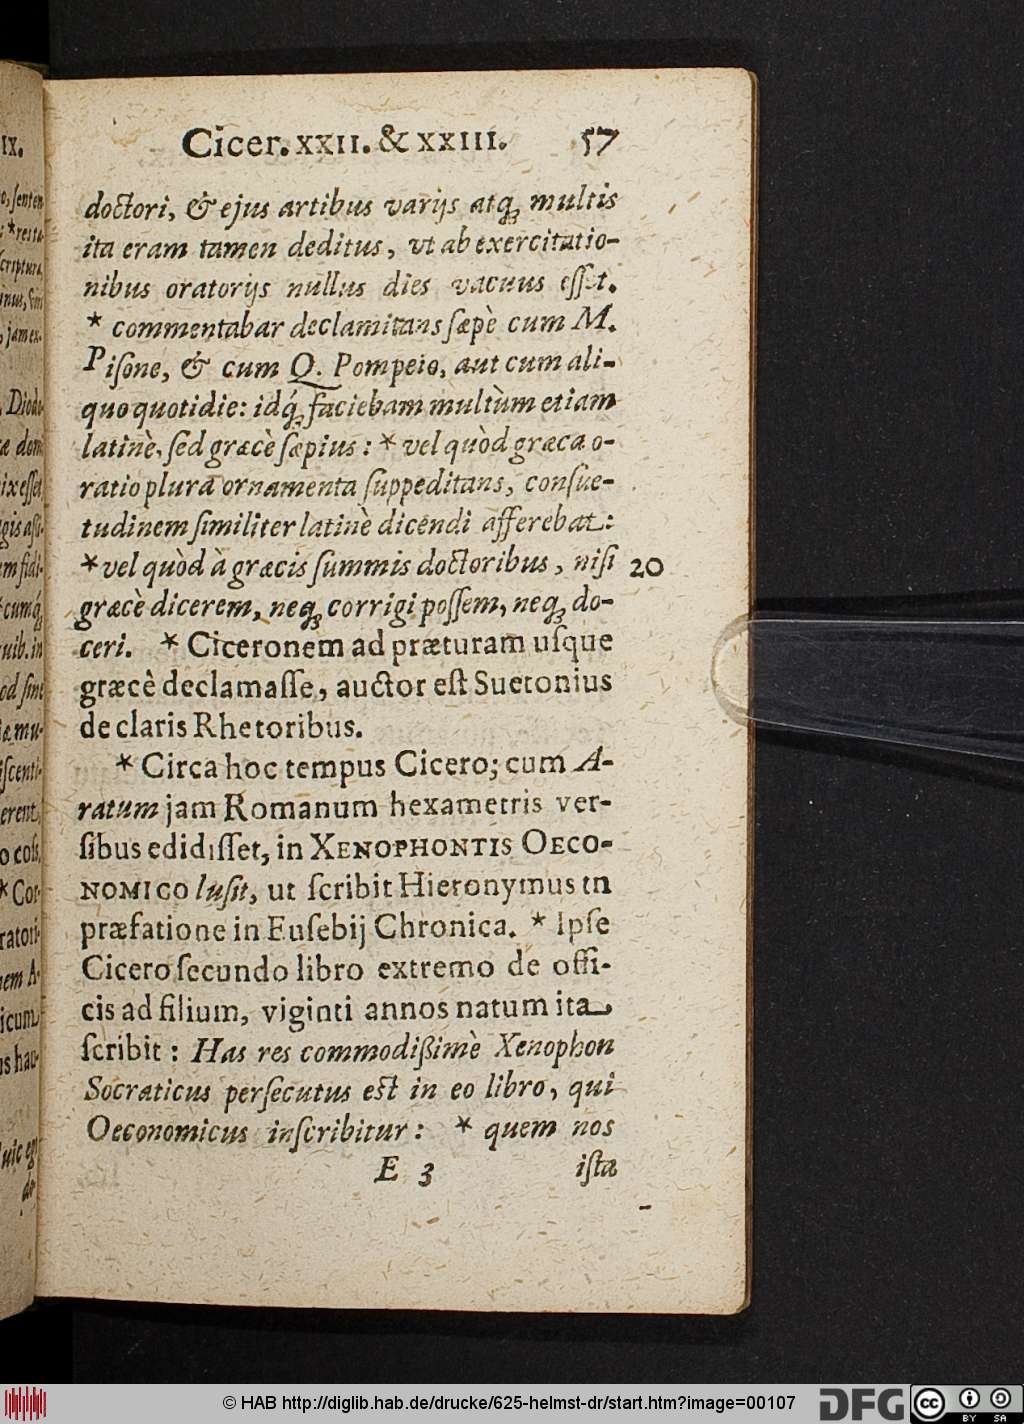 Cicer. XXII. & XXIII. 57
doctori, & ejus artibus varijs atq; multis
ita eram tamen deditus, vt ab exercitatio-
nibus oratorijs nullus dies vacuus eſſet.
* commentabar declamitans ſæpè cum M.
Piſone, & cum Q. Pompeio, aut cum ali-
quo quotidie: idq́; faciebam multùm etiam
latinè, ſed græcè ſæpius: * vel quòd græca o-
ratio plura ornamenta ſuppeditans, conſue-
tudinem ſimiliter latinè dicendi afferebat:
* vel quòd à græcis ſummis doctoribus, niſi 20
græcè dicerem, neq; corrigi poſſem, neq; do-
ceri. * Ciceronem ad præturam uſque
græcè declamaſſe, auctor eſt Suetonius
de claris Rhetoribus.
* Circa hoc tempus Cicero; cum A-
ratum jam Romanum hexametris ver-
ſibus edidiſſet, in XENOPHONTIS OECO-
NOMICO luſit, ut ſcribit Hieronymus in
præfatione in Euſebij Chronica. * Ipſe
Cicero ſecundo libro extremo de offi-
cis ad filium, viginti annos natum ita
ſcribit: Has res commodißimè Xenophon
Socraticus perſecutus eſt in eo libro, qui
Oeconomicus inſcribitur: * quem nos
E 3 iſta
IX.
© HAB http://diglib.hab.de/drucke/625-helmst-dr/start.htm?image=00107
DFG
cc
BY SA